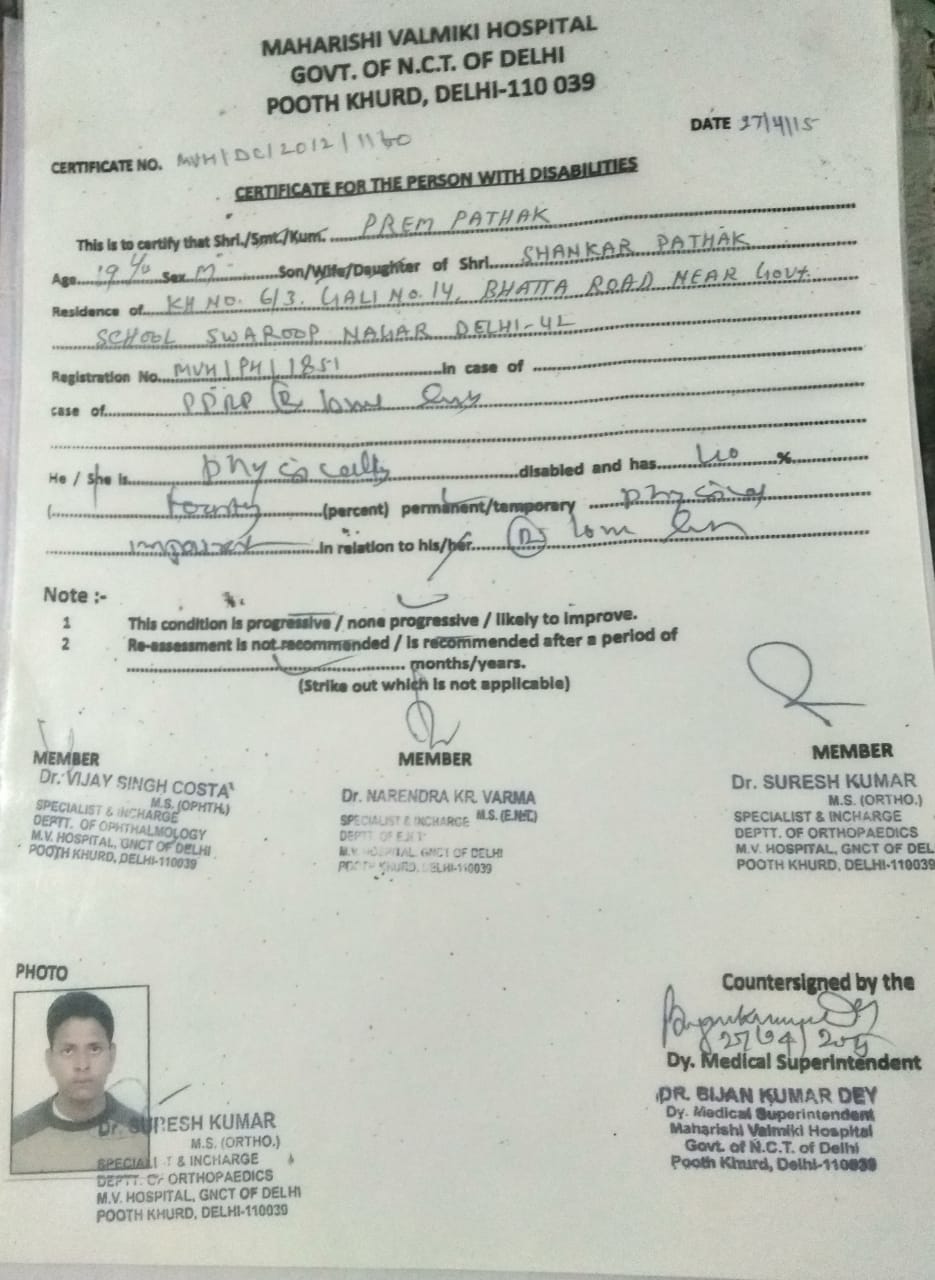 MAHARISHI VALMIKI HOSPITAL
GOVT. OF N.C.T. OF DELHI
POOTH KHURD, DELHI-110 039
DATE 27/4/15
CERTIFICATE NO. MVH/DC/2012/1160
CERTIFICATE FOR THE PERSON WITH DISABILITIES
This is to certify that Shri./Smt./Kum. PREM PATHAK
Age 19 Sex M Son/Wife/Daughter of Shri. SHANKAR PATHAK
Residence of KH NO. 6/3. GALI No. 14, BHATTA ROAD NEAR GOVT.
SCHOOL SWAROOP NAGAR DELHI-42
Registration No. MVH/PH/1851 In case of
case of PPRP (R) lower limb
He / She is physically disabled and has 40 %
( Fourty (percent) permanent/temporary physical
impairment In relation to his/her (R) lower limb
Note :-
1 This condition is progressive / none progressive / likely to improve.
2 Re-assessment is not recommended / is recommended after a period of
months/years.
(Strike out which is not applicable)
MEMBER
Dr. VIJAY SINGH COSTA
M.S. (OPHTH.)
SPECIALIST & INCHARGE
DEPTT. OF OPHTHALMOLOGY
M.V. HOSPITAL, GNCT OF DELHI
POOTH KHURD, DELHI-110039
MEMBER
Dr. NARENDRA KR. VARMA
M.S. (E.N.T.)
SPECIALIST & INCHARGE
DEPTT OF E.N.T
M.V. HOSPITAL, GNCT OF DELHI
POOTH KHURD, DELHI-110039
MEMBER
Dr. SURESH KUMAR
M.S. (ORTHO.)
SPECIALIST & INCHARGE
DEPTT. OF ORTHOPAEDICS
M.V. HOSPITAL, GNCT OF DEL
POOTH KHURD, DELHI-110039
PHOTO
Dr. SURESH KUMAR
M.S. (ORTHO.)
SPECIALIST & INCHARGE
DEPTT. OF ORTHOPAEDICS
M.V. HOSPITAL, GNCT OF DELHI
POOTH KHURD, DELHI-110039
Countersigned by the
27/04/2015
Dy. Medical Superintendent
DR. BIJAN KUMAR DEY
Dy. Medical Superintendent
Maharishi Valmiki Hospital
Govt. of N.C.T. of Delhi
Pooth Khurd, Delhi-110039